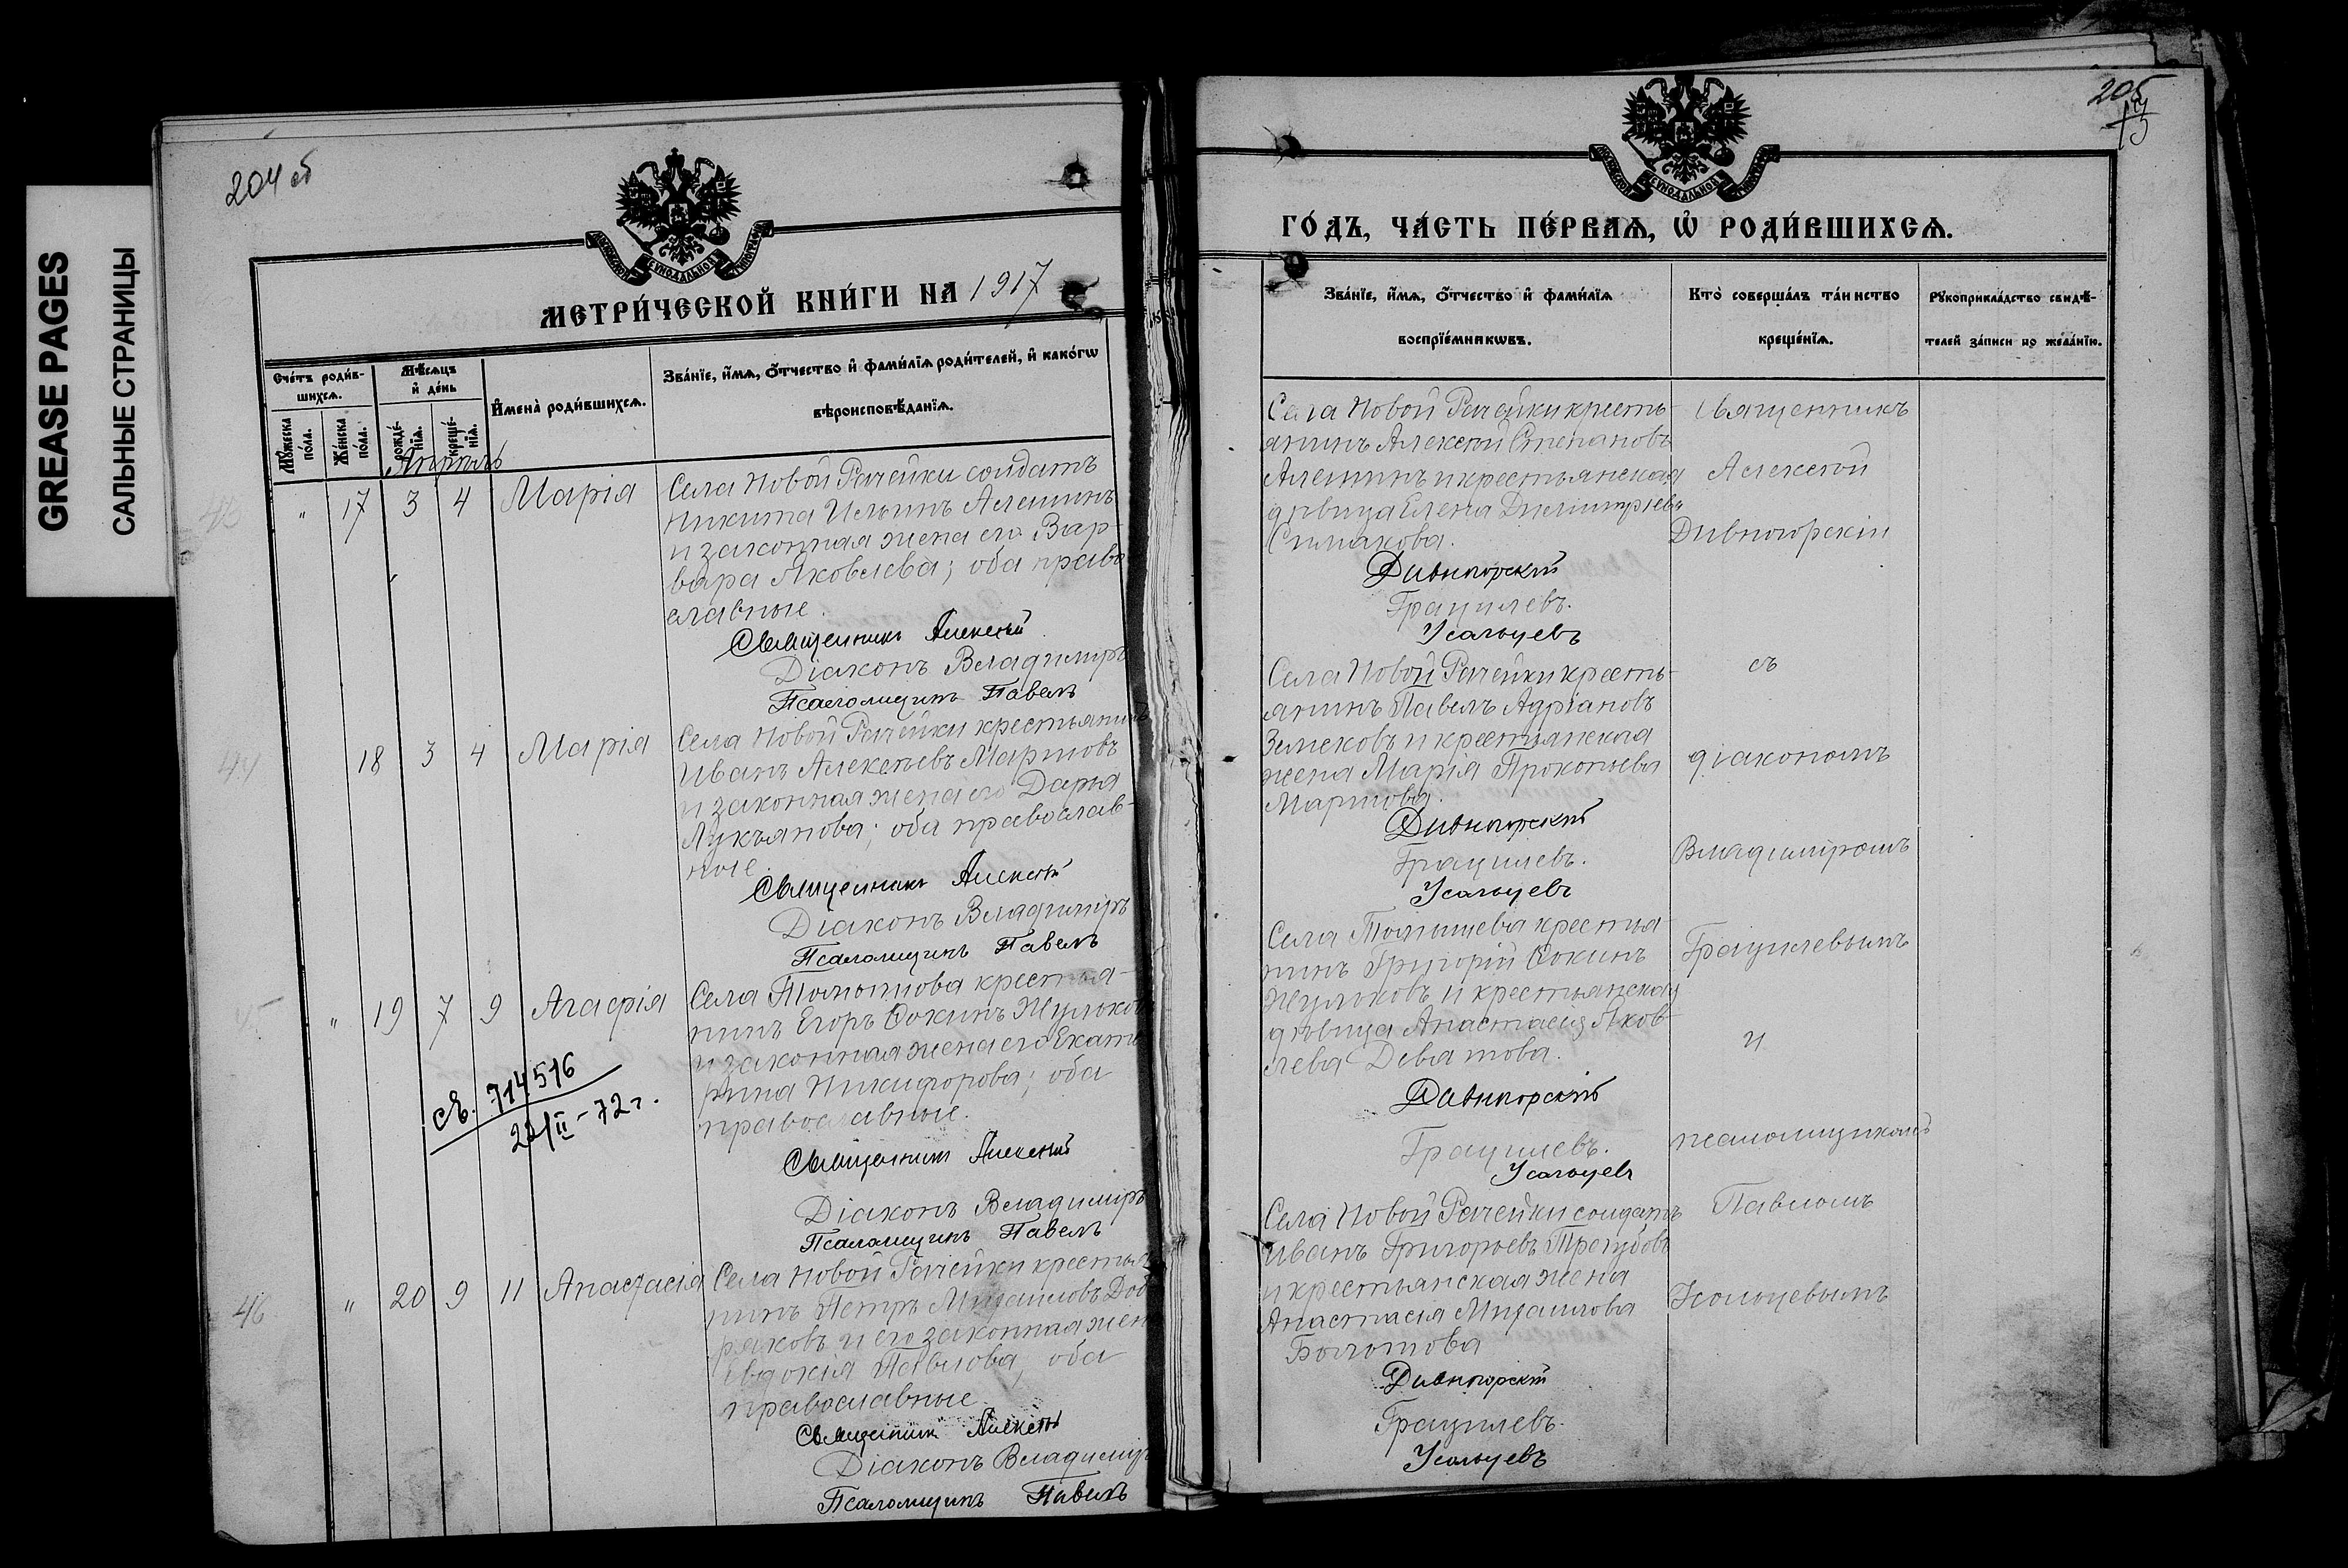 GREASE PAGES
САЛЬНЫЕ СТРАНИЦЫ
204 об
МЕТРИ́ЧЕСКОЙ КНИ́ГИ НА 1917
Сче́тъ роди́в-
шихсѧ.
Мѣсѧцъ
и҆ де́нь
И҆мена̀ роди́вшихсѧ.
Зва́нїе, и҆́мѧ, ѻ҆́тчество и҆ фами́лїѧ роди́телей, и҆ како́гѡ
вѣроисповѣ́данїѧ.
Мꙋ́жеска
по́ла.
Же́нска
по́ла.
рожде́-
нїѧ.
креще́-
нїѧ.
Апрѣль
" 17 3 4 Марія
Села Новой Рачейки солдатъ
Никита Ильинъ Алешинъ
и законная жена его Вар-
вара Яковлева; оба право
славные.
Священникъ Алексѣй
Діаконъ Владиміръ
Псаломщикъ Павелъ
44
18 3 4 Марія
Села Новой Рачейки крестьянинъ
Иванъ Алексѣевъ Мартовъ
и законная жена его Дарья
Лукьянова; оба православ-
ные.
Священникъ Алексѣй
Діаконъ Владиміръ
Псаломщикъ Павелъ
" 19 7 9 Агафія
Села Томышова крестья-
нинъ Егоръ Ѳокинъ Жулюковъ
и законная жена его Екате
рина Никифорова; оба
православные.
714516
22/II-72г.
Священникъ Алексѣй
Діаконъ Владиміръ
Псаломщикъ Павелъ
46
" 20 9 11 Анастасія
Села Новой Рачейки крестья
нинъ Петръ Михаиловъ Доб
ряковъ и его законная жена
Евдокія Павлова, оба
православные
Священникъ Алексѣй
Діаконъ Владиміръ
Псаломщикъ Павелъ
205
ГО́ДЪ, ЧА́СТЬ ПЕ́РВАѦ, Ѡ҆ РОДИ́ВШИХСѦ.
Зва́нїе, и҆́мѧ, ѻ҆́тчество и҆ фами́лїѧ
воспрїе́мникѡвъ.
Кто̀ соверша́лъ та́инство
креще́нїѧ.
Рꙋкоприкла́дство свидѣ́-
телей за́писи по жела́нїю.
Села Новой Рачейки кресть-
янинъ Алексѣй Степановъ
Алешинъ и крестьянская
дѣвица Елена Димитріева
Симакова.
Дивногорскій
Грацилевъ.
Усольцевъ
Села Новой Рачейки кресть-
янинъ Павелъ Адріановъ
Земсковъ и крестьянская
жена Марія Прокопьева
Мартова.
Дивногорскій
Грацилевъ.
Усольцевъ
Села Томышева крестья
нинъ Григорій Ѳокинъ
Жулюковъ и крестьянская
дѣвица Анастасія Яков-
лева Девятова.
Дивногорскій
Грацилевъ.
Усольцевъ
Села Новой Рачейки солдатъ
Иванъ Григорьевъ Трегубовъ
и крестьянская жена
Анастасія Михаилова
Болотова
Дивногорскій
Грацилевъ.
Усольцевъ
Священникъ
Алексѣй
Дивногорскій
съ
діакономъ
Владиміромъ
Грацилевымъ
и
псаломщикомъ
Павломъ
Усольцевымъ